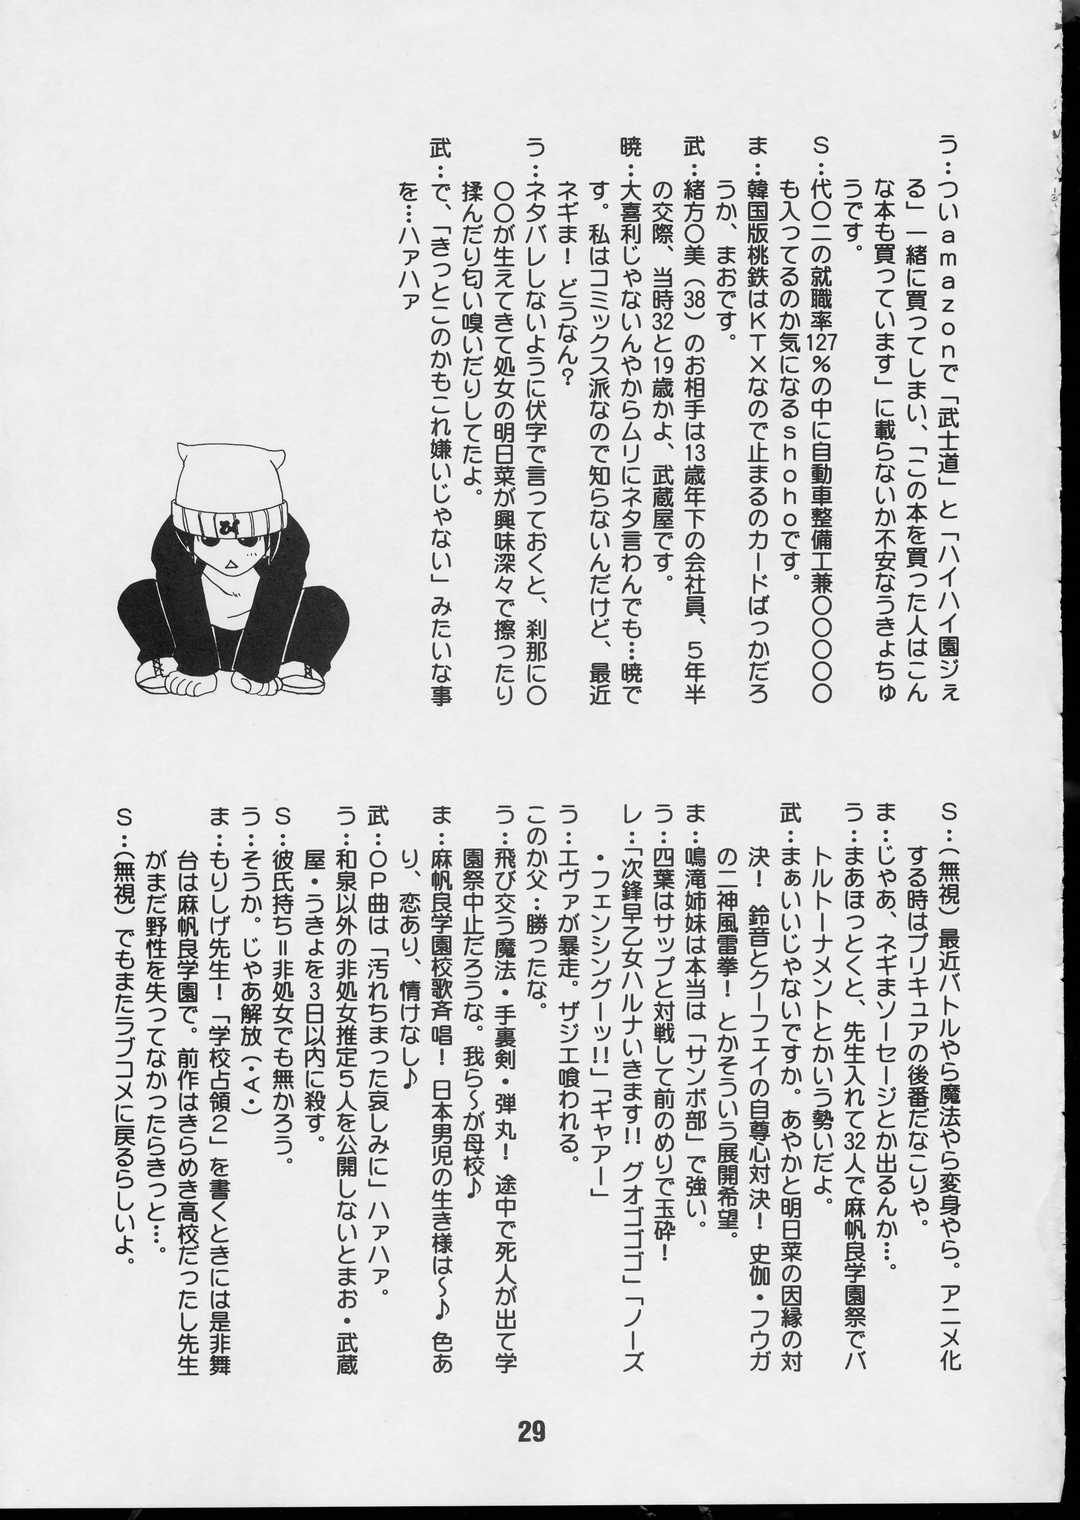 う：ついａｍａｚｏｎで「武士道」と「ハイハイ園ジぇ
る」一緒に買ってしまい、「この本を買った人はこん
な本も買っています」に載らないか不安なうきょちゅ
うです。
Ｓ：代〇ニの就職率127％の中に自動車整備工兼〇〇〇〇〇
も入ってるのか気になるｓｈｏｈｏです。
ま：韓国版桃鉄はＫＴＸなので止まるのカードばっかだろ
うか、まおです。
武：緒方〇美（38）のお相手は13歳年下の会社員、５年半
の交際、当時32と19歳かよ、武蔵屋です。
暁：大喜利じゃないんやからムリにネタ言わんでも…暁で
す。私はコミックス派なので知らないんだけど、最近
ネギま！どうなん？
う：ネタバレしないように伏字で言っておくと、刹那に〇
〇〇が生えてきて処女の明日菜が興味深々で擦ったり
揉んだり匂い嗅いだりしてたよ。
武：で、「きっとこのかもこれ嫌いじゃない」みたいな事
を…ハァハァ
Ｓ：（無視）最近バトルやら魔法やら変身やら。アニメ化
する時はプリキュアの後番だなこりゃ。
ま：じゃあ、ネギまソーセージとか出るんか…。
う：まあほっとくと、先生入れて32人で麻帆良学園祭でバ
トルトーナメントとかいう勢いだよ。
武：まぁいいじゃないですか。あやかと明日菜の因縁の対
決！鈴音とクーフェイの自尊心対決！史伽・フウガ
の二神風雷拳！とかそういう展開希望。
ま：鳴滝姉妹は本当は「サンボ部」で強い。
う：四葉はサップと対戦して前のめりで玉砕！
レ：「次鋒早乙女ハルナいきます!!グオゴゴゴ」「ノーズ
・フェンシングーッ!!」「ギャアー」
う：エヴァが暴走。ザジエ喰われる。
このか父：勝ったな。
う：飛び交う魔法・手裏剣・弾丸！途中で死人が出て学
園祭中止だろうな。我ら〜が母校〜♪
ま：麻帆良学園校歌斉唱！日本男児の生き様は〜♪色あ
り、恋あり、情けなし♪
武：ＯＰ曲は「汚れちまった哀しみに」ハァハァ。
う：和泉以外の非処女推定５人を公開しないとまお・武蔵
屋・うきょを３日以内に殺す。
Ｓ：彼氏持ち＝非処女でも無かろう。
う：そうか。じゃあ解放（・Ａ・）
ま：もりしげ先生！「学校占領２」を書くときには是非舞
台は麻帆良学園で。前作はきらめき高校だったし先生
がまだ野性を失ってなかったらきっと…。
Ｓ：（無視）でもまたラブコメに戻るらしいよ。
29